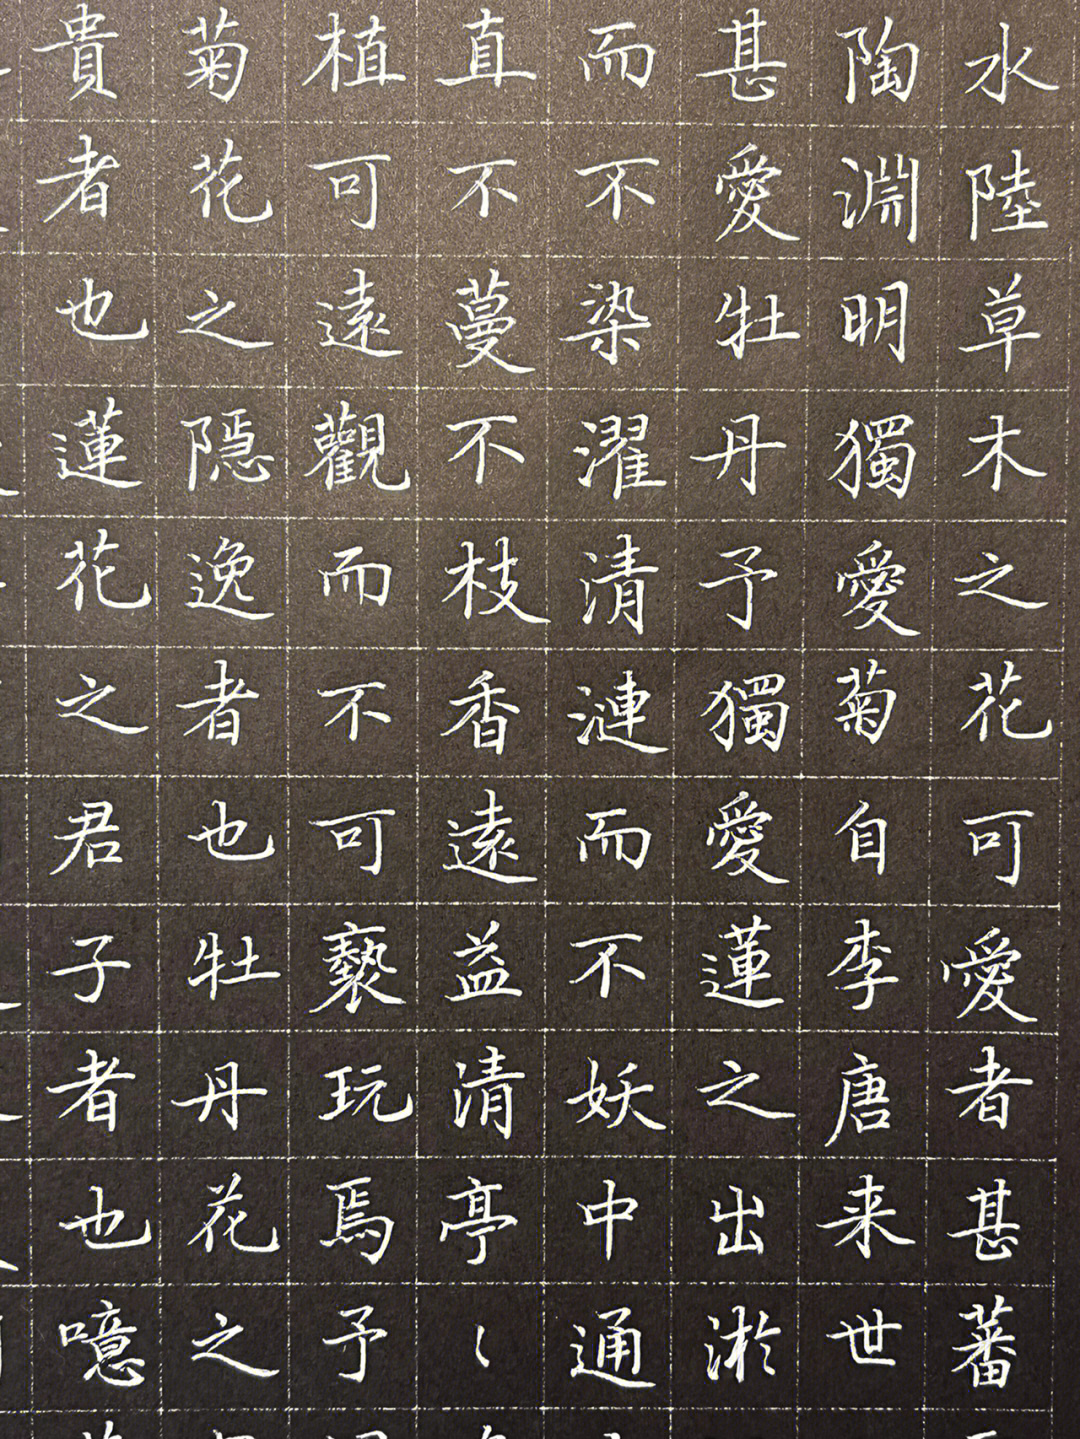 水陸草木之花可愛者甚蕃
陶淵明獨愛菊自李唐来世
甚愛牡丹予獨愛蓮之出淤
而不染濯清漣而不妖中通
直不蔓不枝香遠益清亭〻
植可遠觀而不可褻玩焉予
菊花之隠逸者也牡丹花之
貴者也蓮花之君子者也噫